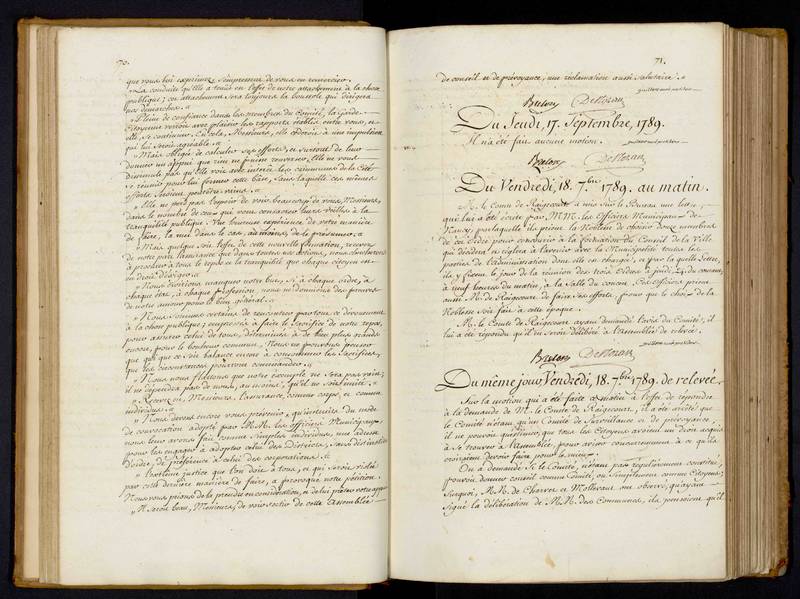 70.
que vous lui exprimez l'empressé de vous en remercier.
"La conduite qu'elle a tenu est l'effet de notre attachement à la chose
publique; cet attachement sera toujours la boussole qui dirigera
ses démarches. "
"Pleine de confiance dans les membres du Comité, la Garde
Citoyenne verroit avec plaisir les rapports établis entre vous, et
elle, se continuer. Et cela, Messieurs, elle
qui lui sera agréable. "
"Mais obligée de calculer ses efforts, et surtout de leur
donner un appui que rien ne puisse renverser, Elle ne vous
dissimule pas qu'elle voit avec intérêt les communes de la Cité
se réunir pour lui former cette base, sans laquelle ces mêmes
efforts seroient peut-être vains. "
"Elle ne perd pas l'espoir de voir beaucoup de vous, Messieurs,
dans le nombre de ceux que vont consacrer leurs veilles à la
tranquilité publique. Une heureuse expérience de votre manière
de faire, la met dans le cas, au moins, de le présumer. "
"Mais quelque soit l'effet de cette nouvelle formation, recevez
de notre part l'assurance que dans toutes nos actions, nous chercherons
à procurer à tous le repos et la tranquilité que chaque citoyen est
en droit d'exiger. "
"Nous croirions manquer notre but, si à chaque ordre, à
chaque état, à chaque Profession, nous ne donnions des preuves
de notre amour pour le bien général. "
"Nous sommes certains de rencontrer partout ce dévouement
à la chose publique; empressés à faire le sacrifice de notre repos,
pour assurer celui de tous, déterminés à de bien plus grands
encore, pour le bonheur commun, Nous ne pouvons penser
que qui que ce soit balance encore à consommer les sacrifices,
que les circonstances pourront commander. "
"Nous nous flattons que notre exemple ne sera pas vain;
il ne dépendra pas de nous, au moins, qu'il ne soit imité. "
"Recevez en, Messieurs, l'assurance, comme corps, et comme
individus. "
"Nous devons encore vous prévenir, qu'instruits du mode
de convocation adopté par MM. les officiers Municipaux
nous leur avons fait, comme simples individus, une adresse
pour les engager à adopter celui des Districts, sans distinction
d'ordre, de préférence à celui des corporations. "
"L'extrême justice que l'on doit à tous, et qui seroit violée
par cette dernière manière de faire, a provoqué notre pétition.
Nous vous prions de la prendre en considération, et de lui prêter votre appui
"Il seroit beau, Messieurs, de voir sortir de cette Assemblée
71.
de conseil et de prévoyance, une réclamation aussi salutaire. "
Breton DeFloran
Du Jeudi, 17. Septembre, 1789.
Il n'a été fait aucune motion.
Breton DeFloran
Du Vendredi, 18. 7.bre 1789. au matin.
M. le Comte de Raigecourt a mis sur le Bureau une lettre,
qui lui a été écrite par MM. les Officiers Municipaux de
Nancy, par laquelle ils prient la Noblesse de choisir douze membres
de cet Ordre pour concourir à la formation du Conseil de la Ville
qui décidera et réglera à l'avenir avec la Municipalité toutes les
parties de l'administration dont elle est chargée, et par la quelle lettre,
ils y fixent le jour de la réunion des trois Ordres à jeudi 24. du courant,
à neuf heures du matin, à la Salle du concert. Ces officiers prient
aussi M. de Raigecourt de faire ses efforts, pour que le choix de la
Noblesse soit fait à cette époque.
M. le Comte de Raigecourt ayant demandé l'avis du Comité, il
lui a été répondu qu'il en seroit délibéré à l'assemblée de relevée.
Breton DeFloran
Du même jour Vendredi, 18. 7.bre 1789. de relevée.
Sur la motion qui a été faite ce matin à l'effet de répondre
à la demande de M. le Comte de Raigecourt, il a été arrêté que
le Comité n'étant qu'un Comité de surveillance et de prévoyance,
il ne pouvoit questionner que tous les Citoyens avoient un droit acquis
à se trouver à l'Assemblée, pour aviser concurremment à ce qu'ils
croiroient devoir faire pour le mieux.
On a demandé, si le Comité, n'étant pas régulièrement constitué,
pouvoit donner conseil comme Comité, ou simplement comme Citoyens;
Surquoi, MM. de Charvet et Mollevaut ont observé, qu'ayant
signé la délibération de MM. des Communes, ils pensoient qu'il